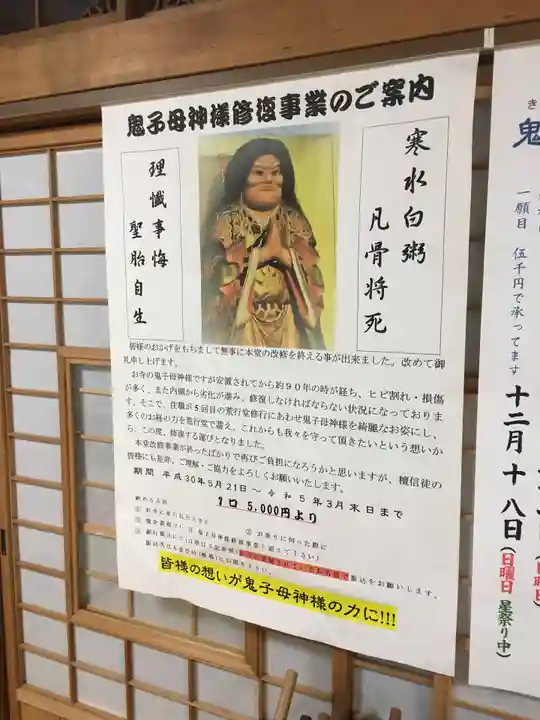 鬼子母神様修復事業のご案内
寒水白粥
凡骨将死
理懺事悔
聖胎自生
皆様のおかげをもちまして無事に本堂の改修を終える事が出来ました。改めて御
礼申し上げます。
お寺の鬼子母神様ですが安置されてから約90年の時が経ち、ヒビ割れ・損傷
が多く、また内側から劣化が進み、修復しなければならない状況になっておりま
す。そこで、住職が5回目の荒行堂修行にあわせ鬼子母神様を綺麗なお姿にし、
多くのお経の力を荒行堂で蓄え、これからも我々を守って頂きたいという想いか
ら、この度、修復する運びとなりました。
本堂改修事業が終ったばかりで再びご負担になろうかと思いますが、檀信徒の
皆様にも是非、ご理解・ご協力をよろしくお願いいたします。
期間 平成30年5月21日～ 令和5年3月末日まで
1口 5,000円より
納める方法
① お寺に来られたときに ② お参りに伺った際に
振込をお願いします。
皆様の想いが鬼子母神様の力に!!!
き
鬼
一願目 伍千円で承ってます
十二月十八日
(日曜日 星祭り中)